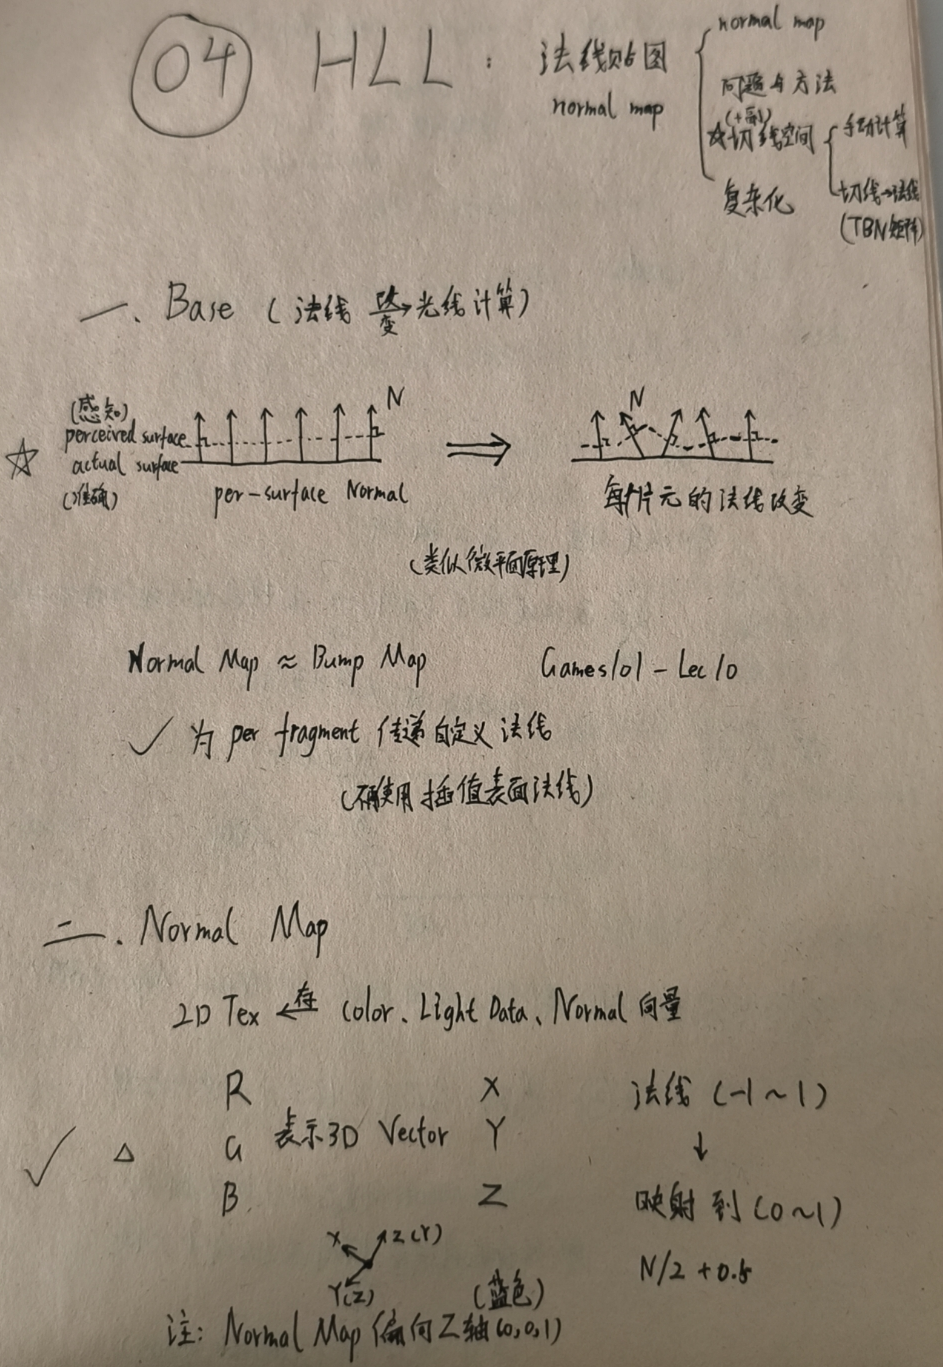 04 HLL : 法线贴图
normal map
normal map
问题与方法
☆切线空间
手动计算
切线→法线
(TBN矩阵)
复杂化
一、Base (法线 改变→ 光线计算)
(感知)
perceived surface
actual surface
(准确)
N
per-surface Normal
N
每个片元的法线改变
(类似微平面原理)
Normal Map ≈ Bump Map
Games101 - Lec10
✓ 为 per fragment 传递自定义法线
(不再使用插值表面法线)
二、Normal Map
2D Tex ←存 Color、Light Data、Normal 向量
R X 法线 (-1~1)
△ G 表示3D Vector Y ↓
B Z 映射到 (0~1)
N/2 + 0.5
X Z(Y)
Y(Z) (蓝色)
注: Normal Map 偏向Z轴(0,0,1)